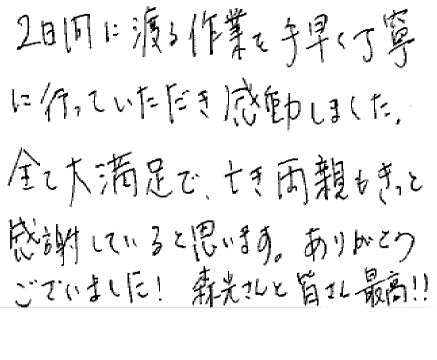 2日間に渡る作業を手早く丁寧
に行っていただき感動しました。
全て大満足で、亡き両親もきっと
感謝していると思います。ありがとう
ございました! 森光さんと皆さん最高!!